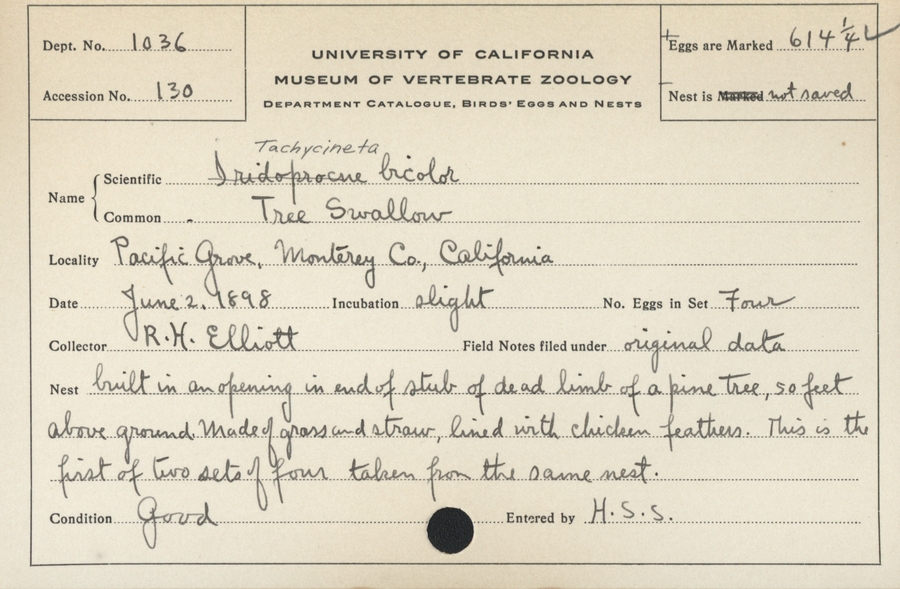 Dept. No. 1036
Accession No. 130
UNIVERSITY OF CALIFORNIA
MUSEUM OF VERTEBRATE ZOOLOGY
DEPARTMENT CATALOGUE, BIRDS' EGGS AND NESTS
Eggs are Marked 614 1/4
Nest is Marked not saved
Tachycineta
Name Scientific Iridoprocne bicolor
Common - Tree Swallow
Locality Pacific Grove, Monterey Co., California
Date June 2, 1898 Incubation slight No. Eggs in Set Four
Collector R.H. Elliott Field Notes filed under original data
Nest built in an opening in end of stub of dead limb of a pine tree, 50 feet
above ground. Made of grass and straw, lined with chicken feathers. This is the
first of two sets of four taken from the same nest.
Condition Good Entered by H.S.S.